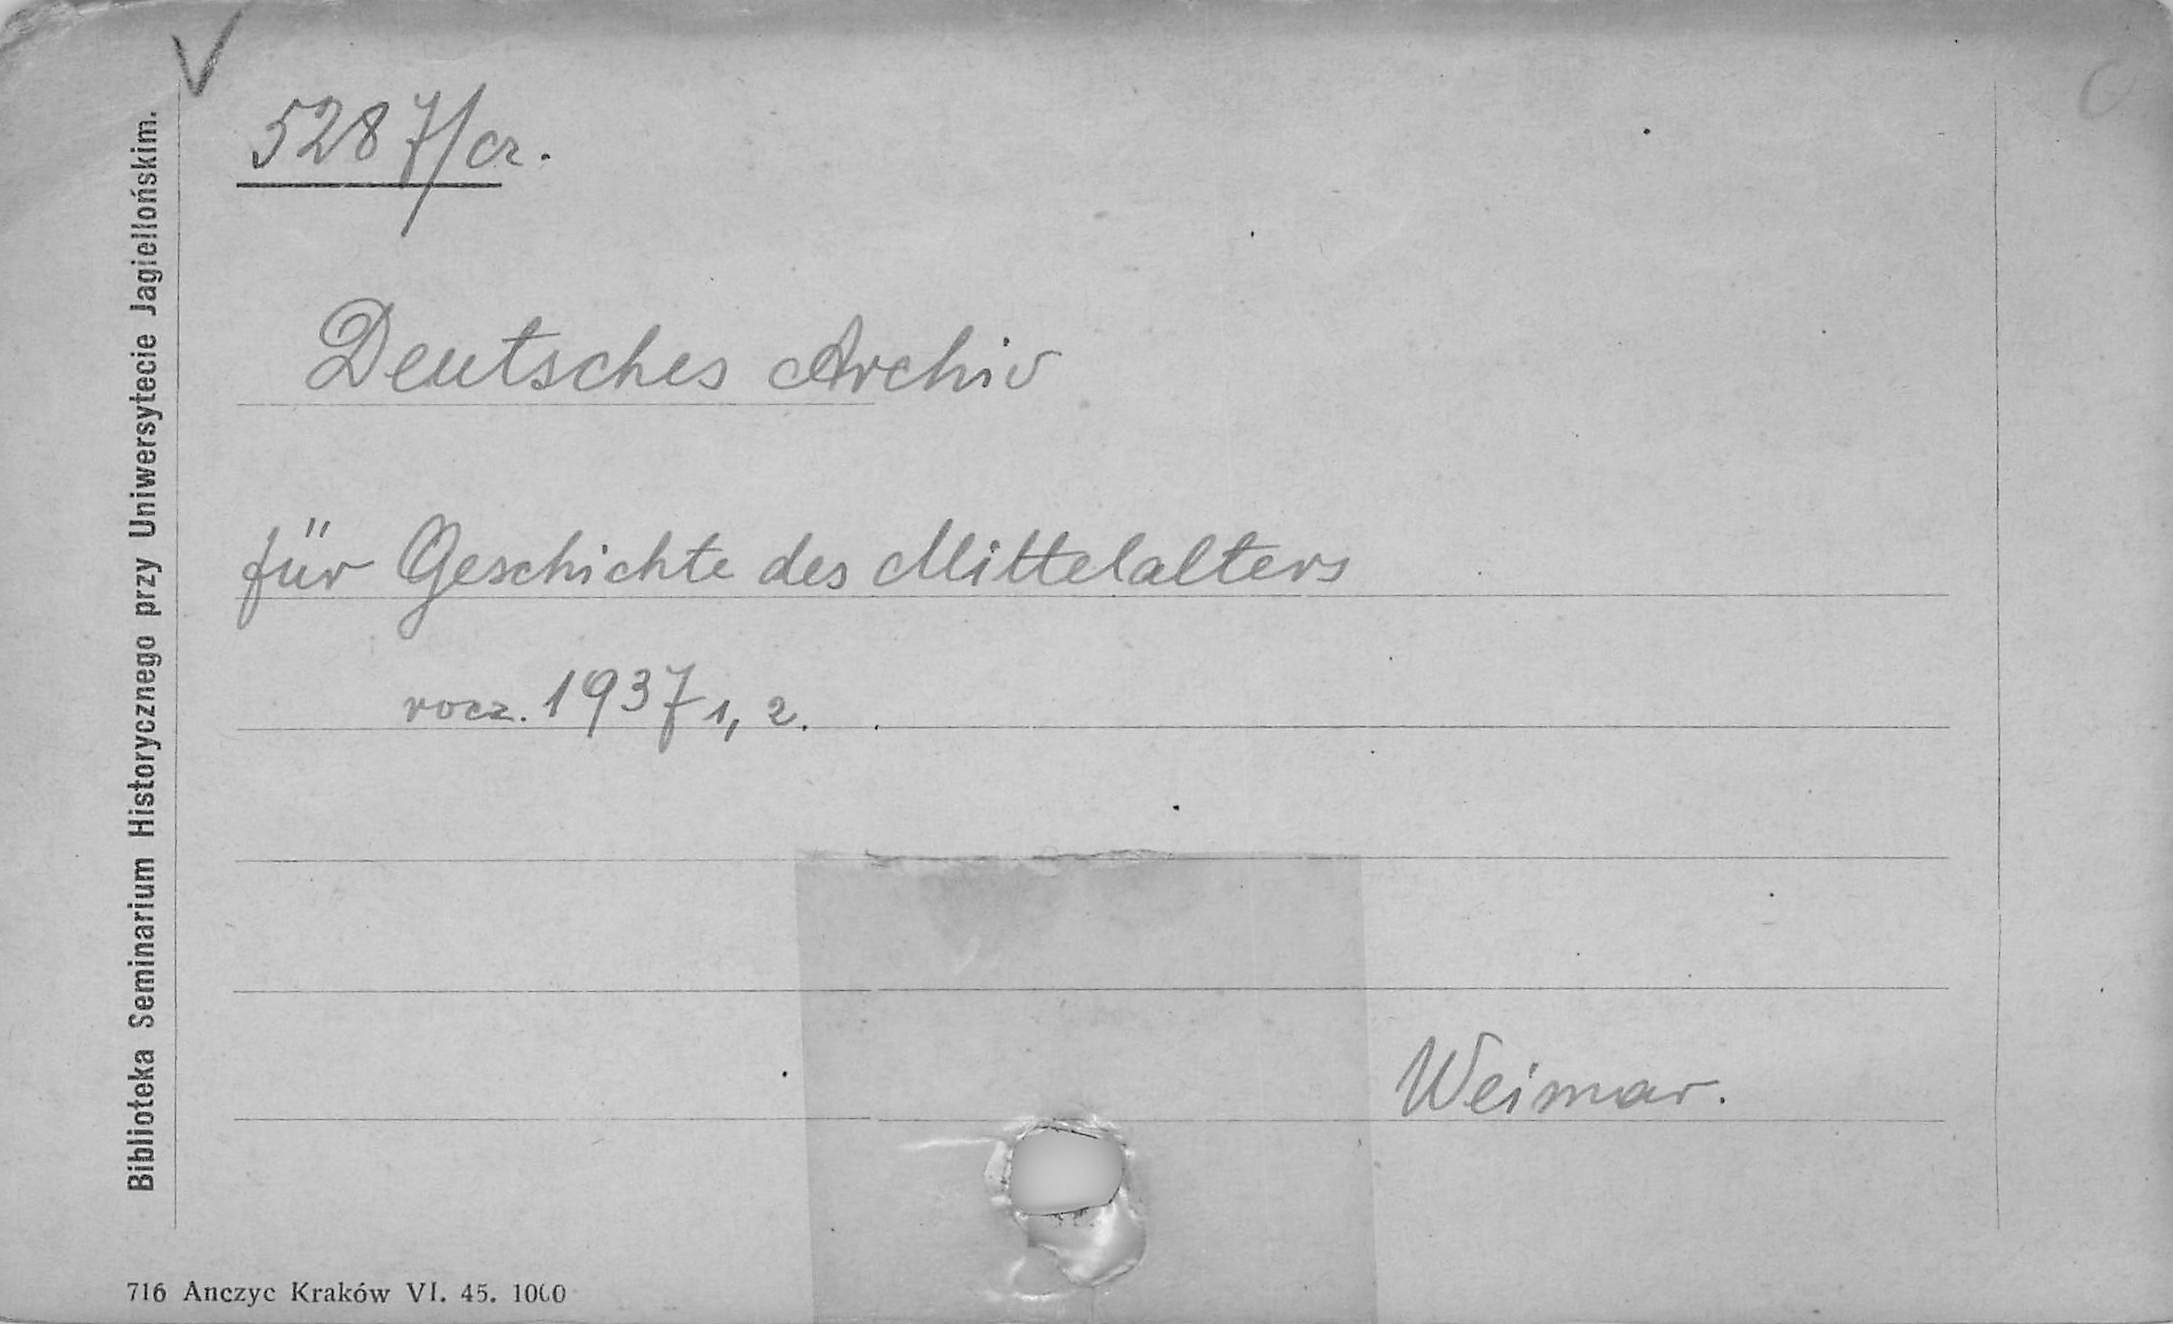 5287/cr.
Deutsches Archiv
für Geschichte des Mittelalters
rocz. 1937 1, 2.
Weimar.
Biblioteka Seminarium Historycznego przy Uniwersytecie Jagiellońskim.
716 Anczyc Kraków VI. 45. 1000